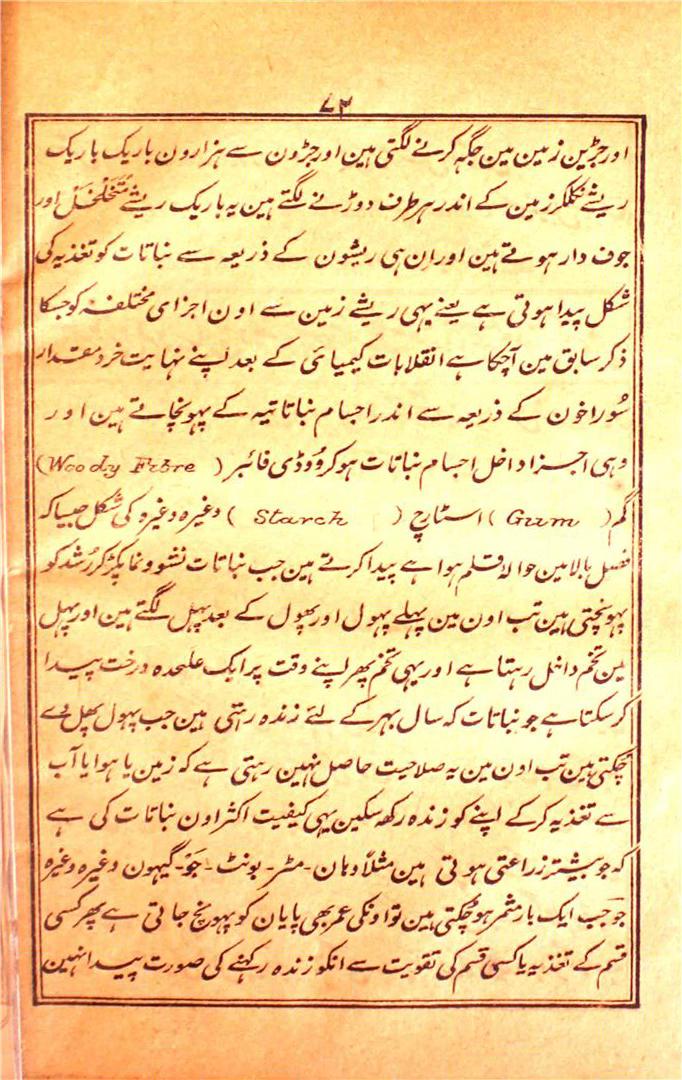 ۷۳
اور جڑین زمین مین جگہ کرنے لگتی ہین اور جڑون سے ہزارون باریک باریک
ریشے نکلکر زمین کے اندر ہر طرف دوڑنے لگتے ہین یہ باریک ریشے مُتَخَلْخَل اور
جوف دار ہوتے ہین اور اِن ہی ریشون کے ذریعہ سے نباتات کو تغذیہ کی
شکل پیدا ہوتی ہے یعنے یہی ریشے زمین سے اون اجزای مختلفہ کو جسکا
ذکر سابق مین آچکا ہے انقلابات کیمیائی کے بعد اپنے نہایت خرد مقدار
سُوراخون کے ذریعہ سے اندر اجسام نباتاتیہ کے پہونچاتے ہین اور
وہی اجزا داخل اجسام نباتات ہوکر وُوڈی فائبر (Woody Fibre)
گم (Gum) اسٹارچ (Starch) وغیرہ وغیرہ کی شکل جیسا کہ
فصل بالا مین حوالۂ قلم ہوا ہے پیدا کرتے ہین جب نباتات نشو و نما پکڑ کر رُشد کو
پہونچتی ہین تب اون مین پہلے پہول اور پھول کے بعد پہل لگتے ہین اور پہل
مین تخم داخل رہتا ہے اور یہی تخم پھر اپنے وقت پر ایک علیحدہ درخت پیدا
کرسکتا ہے جو نباتات کہ سال بہر کے لئے زندہ رہتی ہین جب پہول پھل دے
چُکتی ہین تب اون مین یہ صلاحیت حاصل نہین رہتی ہے کہ زمین یا ہوا یا آب
سے تغذیہ کرکے اپنے کو زندہ رکھ سکین یہی کیفیت اکثر اون نباتات کی ہے
کہ جو بیشتر زراعتی ہوتی ہین مثلًا دہان - مٹر - بونٹ - جَو - گیہون وغیرہ وغیرہ
جو جب ایک بار مثمر ہو چُکتی ہین تو اونکی عمر بھی پایان کو پہونچ جاتی ہے پھر کسی
قسم کے تغذیہ یا کسی قسم کی تقویت سے انکو زندہ رکہنے کی صورت پیدا نہین